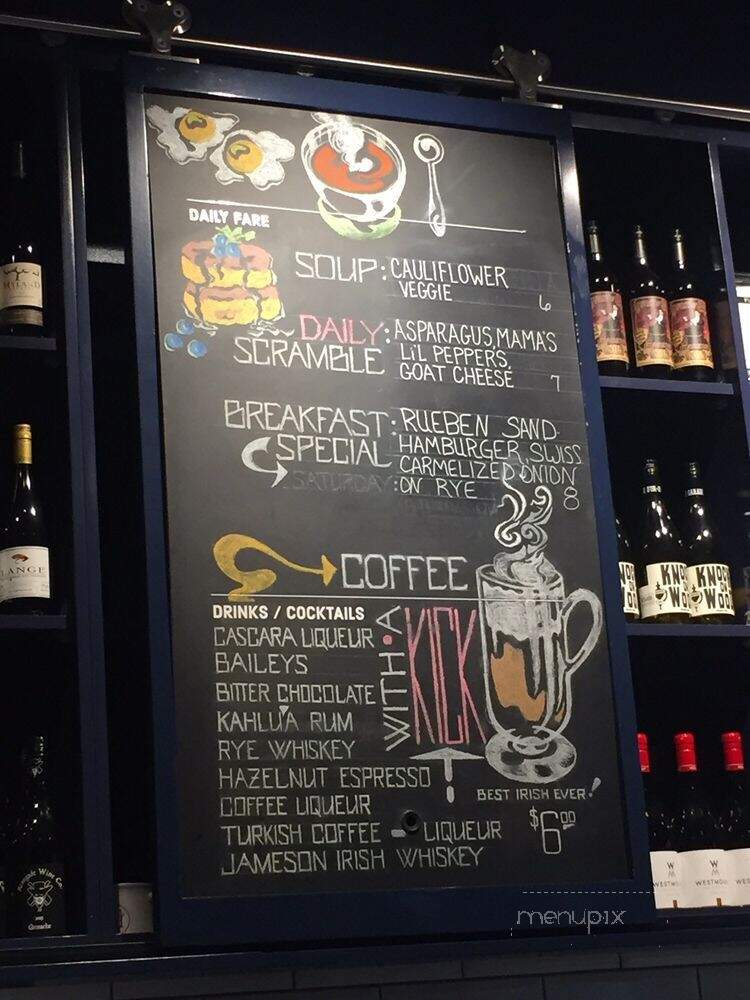 DAILY FARE
SOUP: CAULIFLOWER
VEGGIE 6
DAILY: ASPARAGUS, MAMA'S
SCRAMBLE LI'L PEPPERS,
GOAT CHEESE 7
BREAKFAST: RUEBEN SAND
SPECIAL HAMBURGER, SWISS
CARMELIZED ONION
SATURDAY: ON RYE 8
COFFEE
WITH • A
KICK
DRINKS / COCKTAILS
CASCARA LIQUEUR
BAILEYS
BITTER CHOCOLATE
KAHLUA RUM
RYE WHISKEY
HAZELNUT ESPRESSO
COFFEE LIQUEUR
TURKISH COFFEE - LIQUEUR
JAMESON IRISH WHISKEY
BEST IRISH EVER!
$6.00
LANGE
KNOCK
WOO
KNOCK
WOO
W
M
WESTMOU
W
M
WESTMOUN
Grenache
menupix